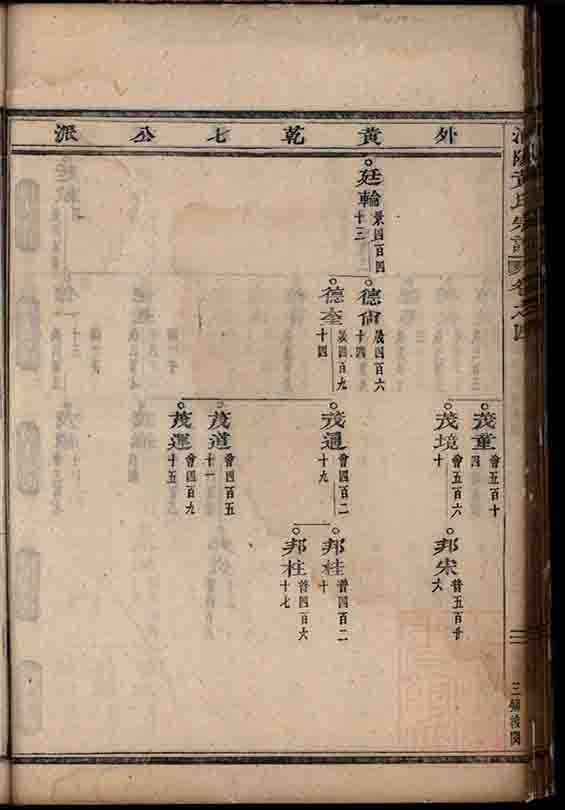 外黃乾七公派
廷輪
景四百四十三
德
晟四百六十四
德奎
晟四百九十四
茂童
會五百十四
茂境
會五百六十
茂通
會四百二十九
茂道
會四百五十一
茂運
會四百九十五
邦宋
普五百廿六
邦桂
普四百二十
邦柱
普四百六十七
黃氏宗譜
卷之四
三